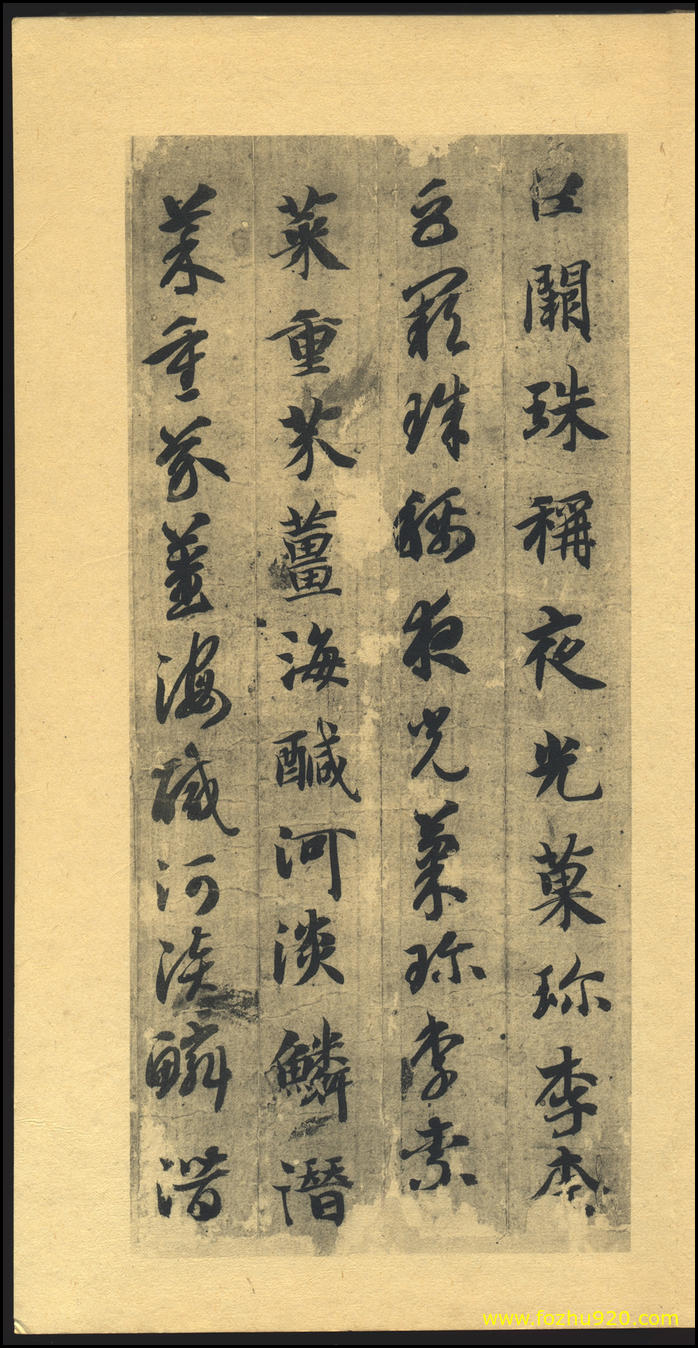 巨闕珠稱夜光菓珎李柰
巨闕珠稱夜光菓珎李柰
菜重芥薑海醎河淡鱗潛
菜重芥薑海醎河淡鱗潛
www.fozhu920.com